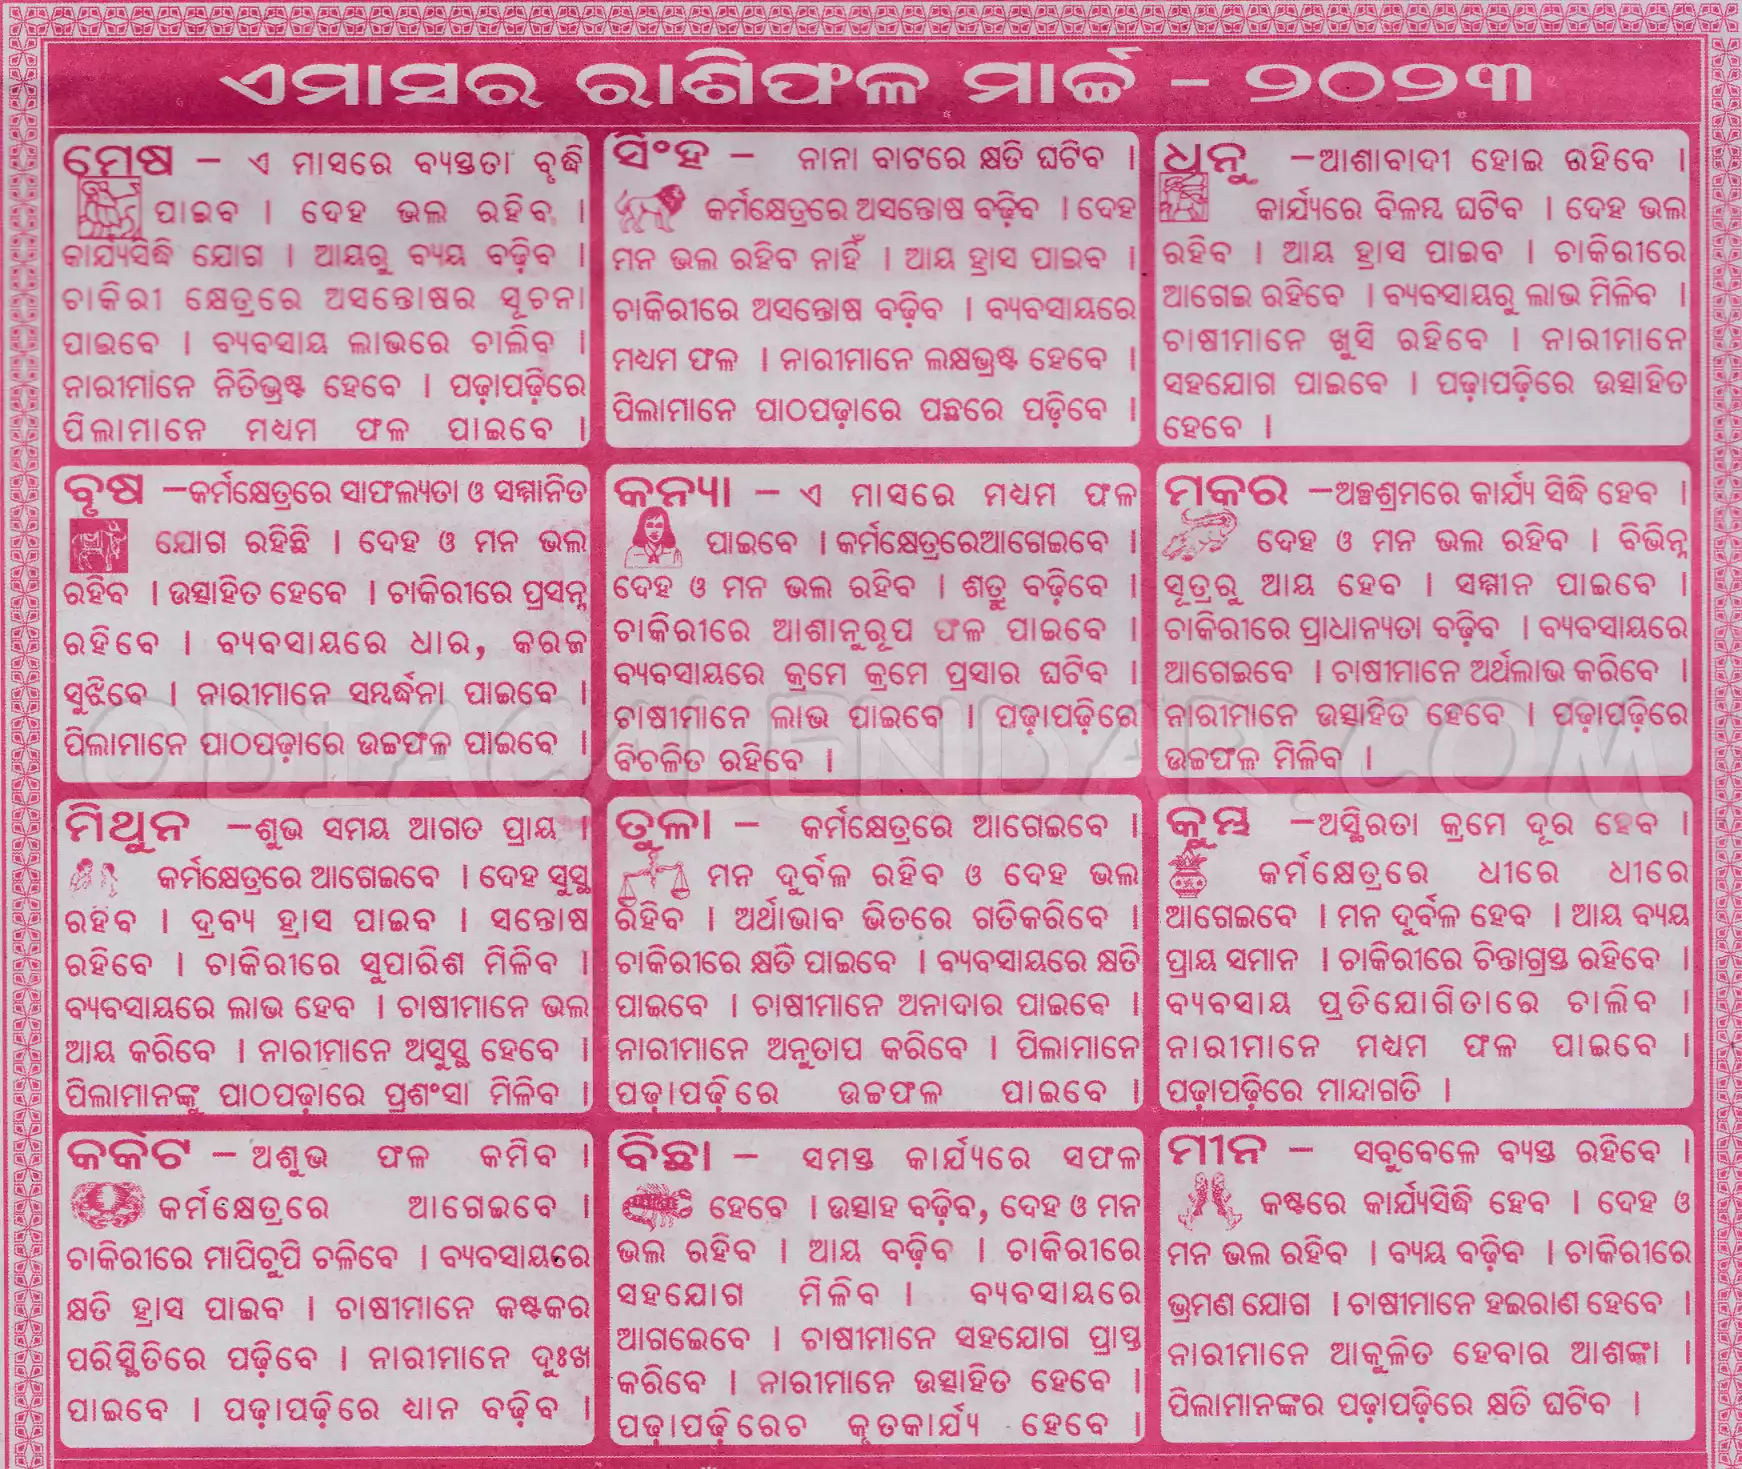 ଏମାସର ରାଶିଫଳ ମାର୍ଚ୍ଚ - ୨୦୨୩
ମେଷ – ଏ ମାସରେ ବ୍ୟସ୍ତତା ବୃଦ୍ଧି
ପାଇବ । ଦେହ ଭଲ ରହିବ ।
କାର୍ଯ୍ୟସିଦ୍ଧି ଯୋଗ । ଆୟରୁ ବ୍ୟୟ ବଢ଼ିବ ।
ଚାକିରୀ କ୍ଷେତ୍ରରେ ଅସନ୍ତୋଷର ସୂଚନା
ପାଇବେ । ବ୍ୟବସାୟ ଲାଭରେ ଚାଲିବ ।
ନାରୀମାନେ ନିତିଭ୍ରଷ୍ଟ ହେବେ । ପଢ଼ାପଢ଼ିରେ
ପିଲାମାନେ ମଧ୍ୟମ ଫଳ ପାଇବେ ।
ବୃଷ –କର୍ମକ୍ଷେତ୍ରରେ ସାଫଲ୍ୟତା ଓ ସମ୍ମାନିତ
ଯୋଗ ରହିଛି । ଦେହ ଓ ମନ ଭଲ
ରହିବ । ଉତ୍ସାହିତ ହେବେ । ଚାକିରୀରେ ପ୍ରସନ୍ନ
ରହିବେ । ବ୍ୟବସାୟରେ ଧାର, କରଜ
ସୁଝିବେ । ନାରୀମାନେ ସମ୍ବର୍ଦ୍ଧନା ପାଇବେ ।
ପିଲାମାନେ ପାଠପଢ଼ାରେ ଉଚ୍ଚଫଳ ପାଇବେ ।
ମିଥୁନ –ଶୁଭ ସମୟ ଆଗତ ପ୍ରାୟ ।
କର୍ମକ୍ଷେତ୍ରରେ ଆଗେଇବେ । ଦେହ ସୁସ୍ଥ
ରହିବ । ଦ୍ରବ୍ୟ ହ୍ରାସ ପାଇବ । ସନ୍ତୋଷ
ରହିବେ । ଚାକିରୀରେ ସୁପାରିଶ ମିଳିବ ।
ବ୍ୟବସାୟରେ ଲାଭ ହେବ । ଚାଷୀମାନେ ଭଲ
ଆୟ କରିବେ । ନାରୀମାନେ ଅସୁସ୍ଥ ହେବେ ।
ପିଲାମାନଙ୍କୁ ପାଠପଢ଼ାରେ ପ୍ରଶଂସା ମିଳିବ ।
କର୍କଟ – ଅଶୁଭ ଫଳ କମିବ ।
କର୍ମକ୍ଷେତ୍ରରେ ଆଗେଇବେ ।
ଚାକିରୀରେ ମାପିଚୁପି ଚଳିବେ । ବ୍ୟବସାୟରେ
କ୍ଷତି ହ୍ରାସ ପାଇବ । ଚାଷୀମାନେ କଷ୍ଟକର
ପରିସ୍ଥିତିରେ ପଢ଼ିବେ । ନାରୀମାନେ ଦୁଃଖ
ପାଇବେ । ପଢ଼ାପଢ଼ିରେ ଧ୍ୟାନ ବଢ଼ିବ ।
ସିଂହ – ନାନା ବାଟରେ କ୍ଷତି ଘଟିବ ।
କର୍ମକ୍ଷେତ୍ରରେ ଅସନ୍ତୋଷ ବଢ଼ିବ । ଦେହ
ମନ ଭଲ ରହିବ ନାହିଁ । ଆୟ ହ୍ରାସ ପାଇବ ।
ଚାକିରୀରେ ଅସନ୍ତୋଷ ବଢ଼ିବ । ବ୍ୟବସାୟରେ
ମଧ୍ୟମ ଫଳ । ନାରୀମାନେ ଲକ୍ଷଭ୍ରଷ୍ଟ ହେବେ ।
ପିଲାମାନେ ପାଠପଢ଼ାରେ ପଛରେ ପଡ଼ିବେ ।
କନ୍ୟା – ଏ ମାସରେ ମଧ୍ୟମ ଫଳ
ପାଇବେ । କର୍ମକ୍ଷେତ୍ରରେଆଗେଇବେ ।
ଦେହ ଓ ମନ ଭଲ ରହିବ । ଶତ୍ରୁ ବଢ଼ିବେ ।
ଚାକିରୀରେ ଆଶାନୁରୂପ ଫଳ ପାଇବେ ।
ବ୍ୟବସାୟରେ କ୍ରମେ କ୍ରମେ ପ୍ରସାର ଘଟିବ ।
ଚାଷୀମାନେ ଲାଭ ପାଇବେ । ପଢ଼ାପଢ଼ିରେ
ବିଚଳିତ ରହିବେ ।
ତୁଳା – କର୍ମକ୍ଷେତ୍ରରେ ଆଗେଇବେ ।
ମନ ଦୁର୍ବଳ ରହିବ ଓ ଦେହ ଭଲ
ରହିବ । ଅର୍ଥାଭାବ ଭିତରେ ଗତିକରିବେ ।
ଚାକିରୀରେ କ୍ଷତି ପାଇବେ । ବ୍ୟବସାୟରେ କ୍ଷତି
ପାଇବେ । ଚାଷୀମାନେ ଅନାଦାର ପାଇବେ ।
ନାରୀମାନେ ଅନୁତାପ କରିବେ । ପିଲାମାନେ
ପଢ଼ାପଢ଼ିରେ ଉଚ୍ଚଫଳ ପାଇବେ ।
ବିଛା – ସମସ୍ତ କାର୍ଯ୍ୟରେ ସଫଳ
ହେବେ । ଉତ୍ସାହ ବଢ଼ିବ, ଦେହ ଓ ମନ
ଭଲ ରହିବ । ଆୟ ବଢ଼ିବ । ଚାକିରୀରେ
ସହଯୋଗ ମିଳିବ । ବ୍ୟବସାୟରେ
ଆଗଇେବେ । ଚାଷୀମାନେ ସହଯୋଗ ପ୍ରାପ୍ତ
କରିବେ । ନାରୀମାନେ ଉତ୍ସାହିତ ହେବେ ।
ପଢ଼ାପଢ଼ିରେଚ କୃତକାର୍ଯ୍ୟ ହେବେ ।
ଧନୁ –ଆଶାବାଦୀ ହୋଇ ରହିବେ ।
କାର୍ଯ୍ୟରେ ବିଳମ୍ବ ଘଟିବ । ଦେହ ଭଲ
ରହିବ । ଆୟ ହ୍ରାସ ପାଇବ । ଚାକିରୀରେ
ଆଗେଇ ରହିବେ । ବ୍ୟବସାୟରୁ ଲାଭ ମିଳିବ ।
ଚାଷୀମାନେ ଖୁସି ରହିବେ । ନାରୀମାନେ
ସହଯୋଗ ପାଇବେ । ପଢ଼ାପଢ଼ିରେ ଉତ୍ସାହିତ
ହେବେ ।
ମକର –ଅଳ୍ପଶ୍ରମରେ କାର୍ଯ୍ୟ ସିଦ୍ଧି ହେବ ।
ଦେହ ଓ ମନ ଭଲ ରହିବ । ବିଭିନ୍ନ
ସୂତ୍ରରୁ ଆୟ ହେବ । ସମ୍ମାନ ପାଇବେ ।
ଚାକିରୀରେ ପ୍ରାଧାନ୍ୟତା ବଢ଼ିବ । ବ୍ୟବସାୟରେ
ଆଗେଇବେ । ଚାଷୀମାନେ ଅର୍ଥଲାଭ କରିବେ ।
ନାରୀମାନେ ଉତ୍ସାହିତ ହେବେ । ପଢ଼ାପଢ଼ିରେ
ଉଚ୍ଚଫଳ ମିଳିବ ।
କୁମ୍ଭ –ଅସ୍ଥିରତା କ୍ରମେ ଦୂର ହେବ ।
କର୍ମକ୍ଷେତ୍ରରେ ଧୀରେ ଧୀରେ
ଆଗେଇବେ । ମନ ଦୁର୍ବଳ ହେବ । ଆୟ ବ୍ୟୟ
ପ୍ରାୟ ସମାନ । ଚାକିରୀରେ ଚିନ୍ତାଗ୍ରସ୍ତ ରହିବେ ।
ବ୍ୟବସାୟ ପ୍ରତିଯୋଗିତାରେ ଚାଲିବ ।
ନାରୀମାନେ ମଧ୍ୟମ ଫଳ ପାଇବେ ।
ପଢ଼ାପଢ଼ିରେ ମାନ୍ଦାଗତି ।
ମୀନ – ସବୁବେଳେ ବ୍ୟସ୍ତ ରହିବେ ।
କଷ୍ଟରେ କାର୍ଯ୍ୟସିଦ୍ଧି ହେବ । ଦେହ ଓ
ମନ ଭଲ ରହିବ । ବ୍ୟୟ ବଢ଼ିବ । ଚାକିରୀରେ
ଭ୍ରମଣ ଯୋଗ । ଚାଷୀମାନେ ହଇରାଣ ହେବେ ।
ନାରୀମାନେ ଆକୁଳିତ ହେବାର ଆଶଙ୍କା ।
ପିଲାମାନଙ୍କର ପଢ଼ାପଢ଼ିରେ କ୍ଷତି ଘଟିବ ।
ODIACALENDAR.COM